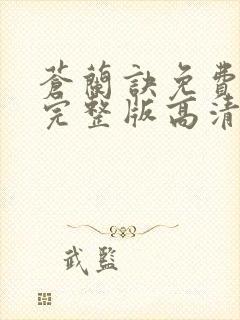 蒼蘭訣免費
完整版高清
武監